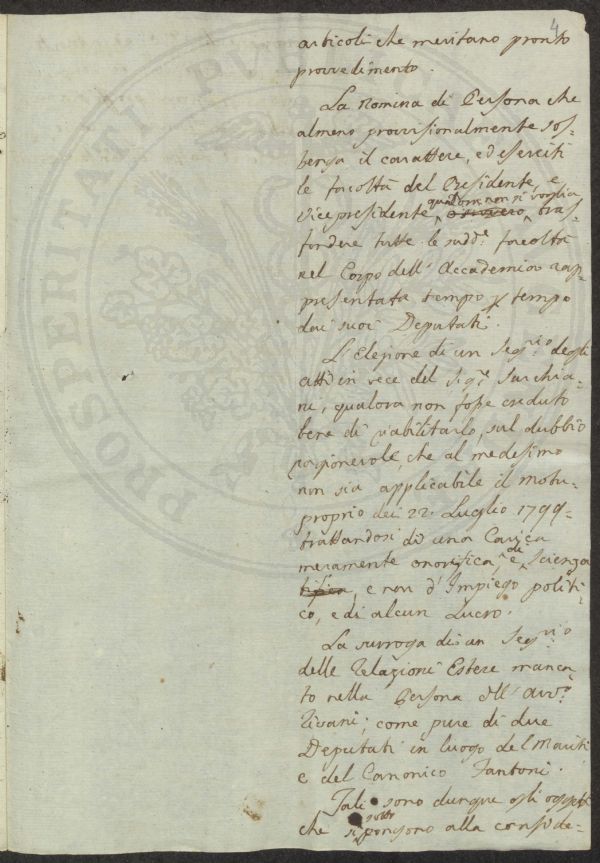 4
articoli che meritano pronto
provvedimento.
La Nomina di Persona che
almeno provvisionalmente sos-
tenga il carattere, ed eserciti
le facoltà del Presidente, e
Vicepresidente, qualora non si voglia tras-
fondere tutte le sudd.e facoltà
nel Corpo dell'Accademia rap-
presentata tempo p tempo
dai suoi Deputati.
L'Elezione di un Seg.rio degli
atti in vece del Sig.e Sarchia-
ni, qualora non fosse creduto
bene di riabilitarlo, sul dubbio
ragionevole, che al medesimo
non sia applicabile il motu-
proprio dei 22. Luglio 1799-
trattandosi di una Carica
meramente onorifica, e di scienza
tifica, e non d'Impiego politi-
co, e di alcun Lucro.
La surroga di un Seg.rio
delle Relazioni Estere manca-
to nella Persona dell'Avv.o
Rivani; come pure di due
Deputati in luogo del Mariti
e del Canonico Fantoni.
Tali sono dunque gli oggetti
che si sottopongono alla conside-
PROSPERITATI PUBLICAE